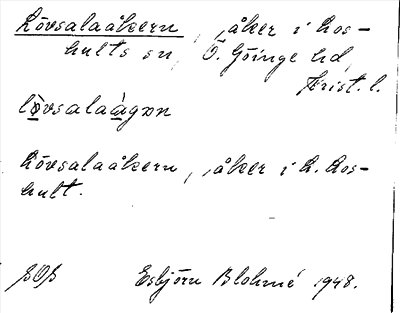 Lövsalaåkern, åker i Los-
hults sn, Ö. Göinge hd,
Krist. l.
lövsalaågən
Lövsalaåkern, åker i L. Los-
hult.
Esbjörn Blohmé 1948.